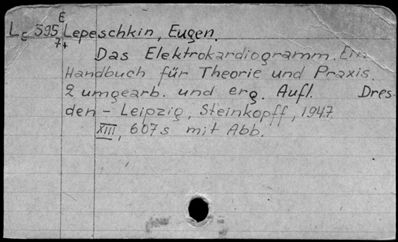 E
Lc 595 Lepeschkin, Eugen.
7+
Das Elektrokardiogramm. Ein
Handbuch für Theorie und Praxis.
2 umgearb. und erg. Aufl. Dres
den - Leipzig, Steinkopff, 1947
XIII, 607s mit Abb.